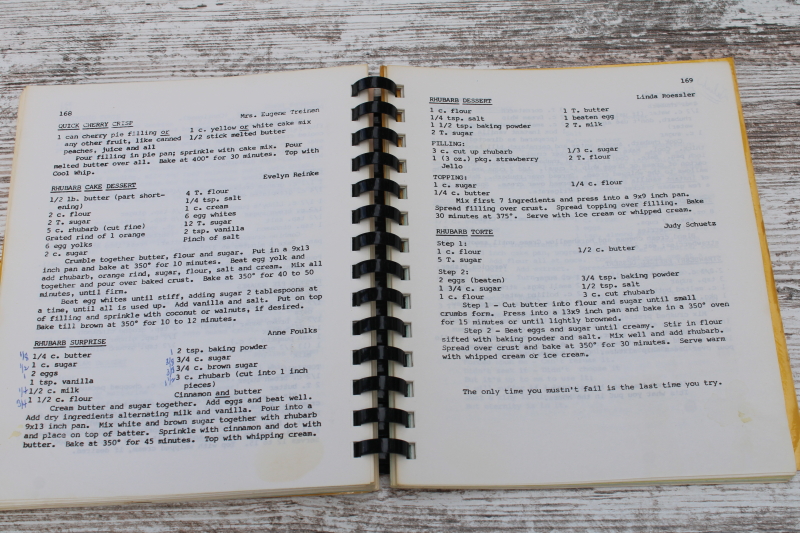 168
Mrs. Eugene Treinen
QUICK CHERRY CRISP
1 can cherry pie filling or
any other fruit, like canned
peaches, juice and all
1 c. yellow or white cake mix
1/2 stick melted butter
Pour filling in pie pan; sprinkle with cake mix. Pour
melted butter over all. Bake at 400° for 30 minutes. Top with
Cool Whip.
Evelyn Reinke
RHUBARB CAKE DESSERT
1/2 lb. butter (part short-
ening)
2 c. flour
2 T. sugar
5 c. rhubarb (cut fine)
Grated rind of 1 orange
6 egg yolks
2 c. sugar
4 T. flour
1/4 tsp. salt
1 c. cream
6 egg whites
12 T. sugar
2 tsp. vanilla
Pinch of salt
Crumble together butter, flour and sugar. Put in a 9x13
inch pan and bake at 350° for 10 minutes. Beat egg yolk and
add rhubarb, orange rind, sugar, flour, salt and cream. Mix all
together and pour over baked crust. Bake at 350° for 40 to 50
minutes, until firm.
Beat egg whites until stiff, adding sugar 2 tablespoons at
a time, until all is used up. Add vanilla and salt. Put on top
of filling and sprinkle with coconut or walnuts, if desired.
Bake till brown at 350° for 10 to 12 minutes.
Anne Foulks
RHUBARB SURPRISE
1/4 c. butter
1 c. sugar
2 eggs
1 tsp. vanilla
1/2 c. milk
1 1/2 c. flour
2 tsp. baking powder
3/4 c. sugar
3/4 c. brown sugar
3 c. rhubarb (cut into 1 inch
pieces)
Cinnamon and butter
Cream butter and sugar together. Add eggs and beat well.
Add dry ingredients alternating milk and vanilla. Pour into a
9x13 inch pan. Mix white and brown sugar together with rhubarb
and place on top of batter. Sprinkle with cinnamon and dot with
butter. Bake at 350° for 45 minutes. Top with whipping cream.
169
Linda Roessler
RHUBARB DESSERT
1 c. flour
1/4 tsp. salt
1 1/2 tsp. baking powder
2 T. sugar
1 T. butter
1 beaten egg
2 T. milk
FILLING:
3 c. cut up rhubarb
1 (3 oz.) pkg. strawberry
Jello
1/3 c. sugar
2 T. flour
TOPPING:
1 c. sugar
1/4 c. butter
1/4 c. flour
Mix first 7 ingredients and press into a 9x9 inch pan.
Spread filling over crust. Spread topping over filling. Bake
30 minutes at 375°. Serve with ice cream or whipped cream.
Judy Schuetz
RHUBARB TORTE
Step 1:
1 c. flour
5 T. sugar
1/2 c. butter
Step 2:
2 eggs (beaten)
1 3/4 c. sugar
1 c. flour
3/4 tsp. baking powder
1/2 tsp. salt
3 c. cut rhubarb
Step 1 - Cut butter into flour and sugar until small
crumbs form. Press into a 13x9 inch pan and bake in a 350° oven
for 15 minutes or until lightly browned.
Step 2 - Beat eggs and sugar until creamy. Stir in flour
sifted with baking powder and salt. Mix well and add rhubarb.
Spread over crust and bake at 350° for 30 minutes. Serve warm
with whipped cream or ice cream.
The only time you mustn't fail is the last time you try.